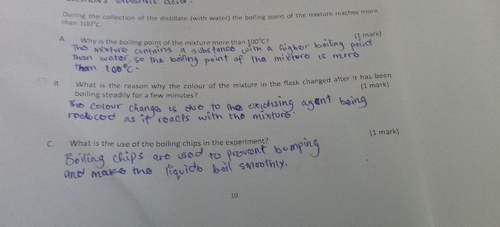 During the collection of the distillate (with water) the boiling point of the mixture reaches more
than 100°C.
A. Why is the boiling point of the mixture more than 100°C? (1 mark)
The mixture contains a substance with a higher boiling point
than water, so the boiling point of the mixture is more
than 100°C.
B. What is the reason why the colour of the mixture in the flask changed after it has been
boiling steadily for a few minutes? (1 mark)
The colour change is due to the oxidising agent being
reduced as it reacts with the mixture.
C. What is the use of the boiling chips in the experiment? (1 mark)
Boiling chips are used to prevent bumping
and make the liquids boil smoothly.
19